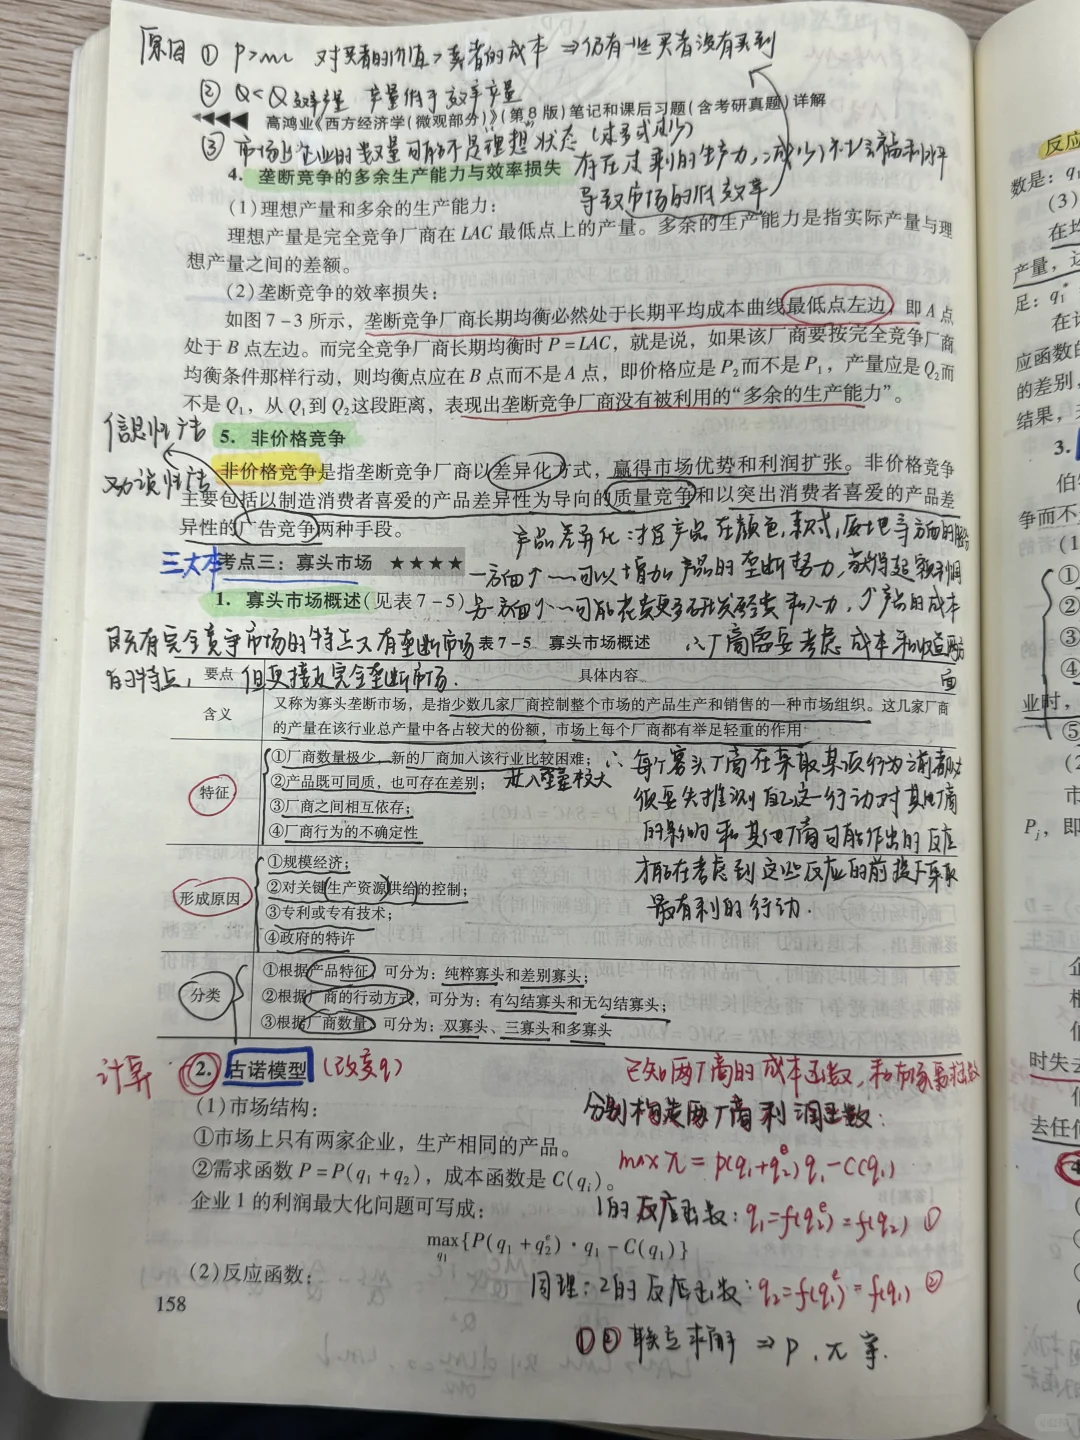 原因 ① P>mc 对买者的价值>卖者的成本 ⇒仍有一些买者没有买到
② Q<Q效率产量 产量低于效率产量
高鸿业《西方经济学(微观部分)》(第8版)笔记和课后习题(含考研真题)详解
③ 市场上企业的数量可能不是理想状态(过多或过少)
存在过剩的生产力,减少了社会福利水平
导致市场的低效率
4. 垄断竞争的多余生产能力与效率损失
(1)理想产量和多余的生产能力:
理想产量是完全竞争厂商在LAC最低点上的产量。多余的生产能力是指实际产量与理
想产量之间的差额。
(2)垄断竞争的效率损失:
如图7-3所示,垄断竞争厂商长期均衡必然处于长期平均成本曲线最低点左边,即A点
处于B点左边。而完全竞争厂商长期均衡时P=LAC,就是说,如果该厂商要按完全竞争厂商
均衡条件那样行动,则均衡点应在B点而不是A点,即价格应是P₂而不是P₁,产量应是Q₂而
不是Q₁,从Q₁到Q₂这段距离,表现出垄断竞争厂商没有被利用的“多余的生产能力”。
信息性广告
劝说性广告
5. 非价格竞争
非价格竞争是指垄断竞争厂商以差异化方式,赢得市场优势和利润扩张。非价格竞争
主要包括以制造消费者喜爱的产品差异性为导向的质量竞争和以突出消费者喜爱的产品差
异性的广告竞争两种手段。
产品差异化:指产品在颜色,款式,原产地等方面的
一方面个一一可以增加产品的垄断势力,获得超额利润
三大本
考点三:寡头市场 ★★★★
1. 寡头市场概述(见表7-5)
另一方面个一一可能花费更多研发经费和人力,个产品的成本
既有完全竞争市场的特点又有垄断市场
的特点,但更接近完全垄断市场.
表7-5 寡头市场概述
∴厂商需要考虑成本和收益两方面
要点 具体内容
含义 又称为寡头垄断市场,是指少数几家厂商控制整个市场的产品生产和销售的一种市场组织。这几家厂商
的产量在该行业总产量中各占较大的份额,市场上每个厂商都有举足轻重的作用
特征
①厂商数量极少,新的厂商加入该行业比较困难;
②产品既可同质,也可存在差别;
进入壁垒较大
③厂商之间相互依存;
④厂商行为的不确定性
∴每个寡头厂商在采取某项行为之前都必
须要先推测自己这一行动对其他厂商
的影响和其他厂商可能作出的反应
才能在考虑到这些反应的前提下采取
最有利的行动.
形成原因
①规模经济;
②对关键生产资源供给的控制;
③专利或专有技术;
④政府的特许
分类
①根据产品特征,可分为:纯粹寡头和差别寡头;
②根据厂商的行动方式,可分为:有勾结寡头和无勾结寡头;
③根据厂商数量,可分为:双寡头、三寡头和多寡头
计算
2. 古诺模型 (改变q)
已知两厂商的成本函数,和市场需求函数
分别构造两厂商利润函数:
(1)市场结构:
①市场上只有两家企业,生产相同的产品。
max π=p(q₁+q₂ᵉ)q₁-C(q₁)
②需求函数P=P(q₁+q₂),成本函数是C(qᵢ)。
企业1的利润最大化问题可写成:
1的反应函数:q₁=f(q₂ᵉ)=f(q₂) ①
max{P(q₁+q₂ᵉ)·q₁-C(q₁)}
q₁
(2)反应函数:
同理:2的反应函数:q₂=f(q₁ᵉ)=f(q₁) ②
①②联立求解 ⇒ P、π等.
158
反应
数是:q₁
(3)
在均
产量,这
足:q₁*
在讨
应函数的
的差别,
结果,
3.
伯
争而不
(1
①
②
③
④
业时,
⑤
(2
市
Pⱼ,即
时失去
去任何